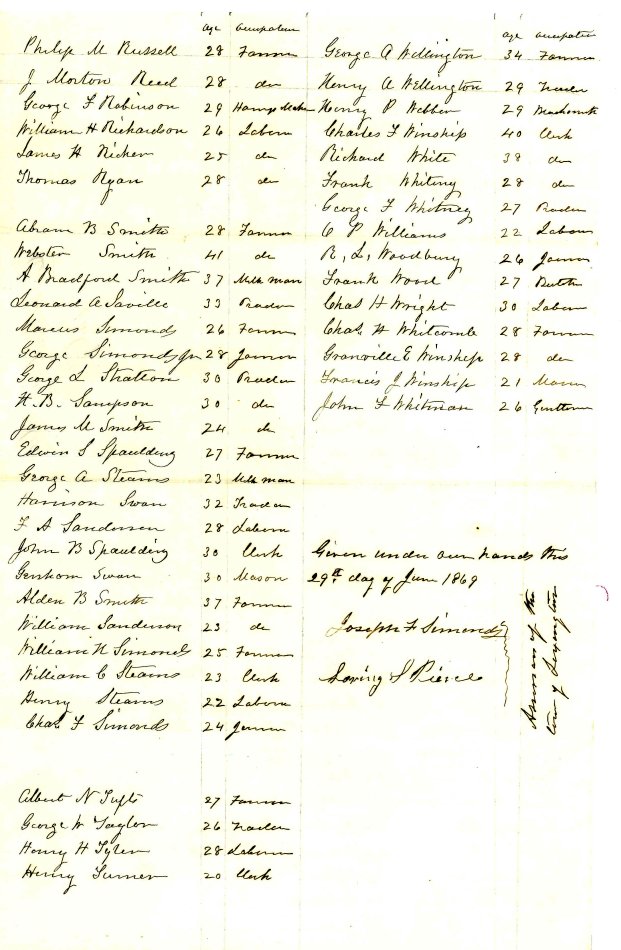 age occupation
Philip M Russell 28 Farmer
J Morton Reed 28 do
George F Robinson 29 Harness Maker
William H Richardson 26 Laborer
James H Ricker 25 do
Thomas Ryan 28 do
Abram B Smith 28 Farmer
Webster Smith 41 do
A Bradford Smith 37 Milk man
Leonard A Saville 33 Trader
Marcus Simonds 26 Farmer
George Simonds Jr 28 Farmer
George L Stratton 30 Trader
H. B. Sampson 30 do
James M Smith 24 do
Edwin S Spaulding 27 Farmer
George A Stearns 23 Milk man
Harrison Swan 32 Trader
F A Sanderson 28 Laborer
John B Spaulding 30 Clerk
Gershom Swan 30 Mason
Alden B Smith 37 Farmer
William Sanderson 23 do
William N Simonds 25 Farmer
William C Stearns 23 Clerk
Henry Stearns 22 Laborer
Chas F Simonds 24 Farmer
Albert N Tufts 27 Farmer
George W Taylor 26 Trader
Henry H Tyler 28 Laborer
Henry Turner 20 Clerk
age occupation
George A Wellington 34 Farmer
Henry A Wellington 29 Trader
Henry P Webber 29 Blacksmith
Charles T Winship 40 Clerk
Richard White 38 do
Frank Whiting 28 do
George F Whitney 27 Trader
C P Williams 22 Laborer
R, L, Woodbury 26 Farmer
Frank Wood 27 Butcher
Chas H Wright 30 Laborer
Chas. H Whitcomb 28 Farmer
Granville E Winship 28 do
Francis J Winship 21 Mason
John F Whitman 26 Gentleman
Given under our hands this
29th day of June 1869
Joseph F Simonds
Loring S Pierce
Assessors of the
town of Lexington